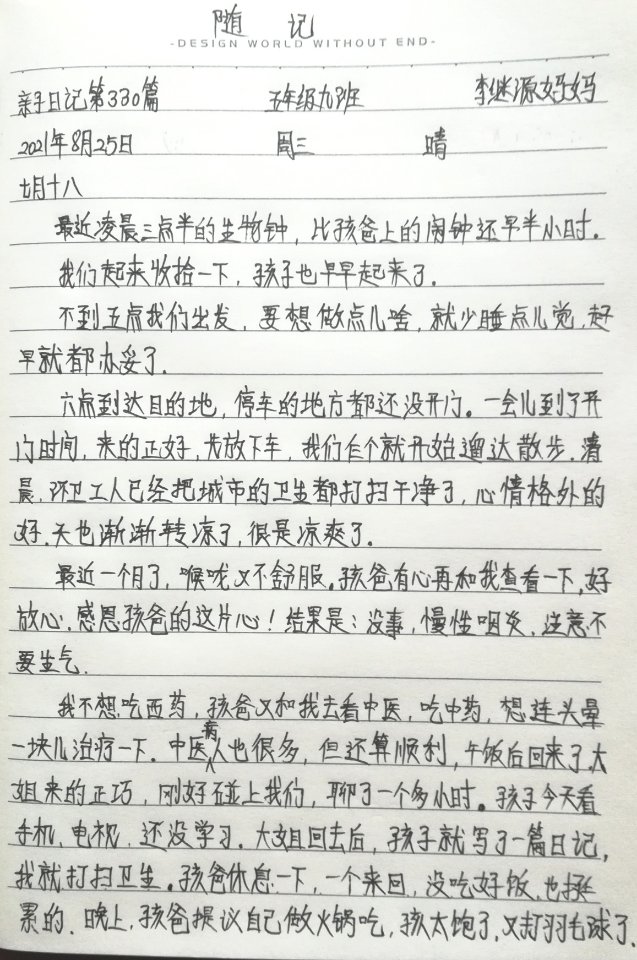 随记
-DESIGN WORLD WITHOUT END-
亲子日记第330篇 五年级九班 李继源妈妈
2021年8月25日 周三 晴
七月十八
最近凌晨三点半的生物钟，比孩爸上的闹钟还早半小时。
我们起来收拾一下，孩子也早早起来了。
不到五点我们出发，要想做点儿啥，就少睡点儿觉，赶
早就都办妥了.
六点到达目的地，停车的地方都还没开门。一会儿到了开
门时间，来的正好，先放下车，我们仨个就开始遛达散步.清
晨，环卫工人已经把城市的卫生都打扫干净了，心情格外的
好.天也渐渐转凉了，很是凉爽了.
最近一个月了，喉咙又不舒服。孩爸有心再和我查看一下，好
放心.感恩孩爸的这片心！结果是：没事，慢性咽炎.注意不
要生气.
我不想吃西药，孩爸又和我去看中医，吃中药，想连头晕
一块儿治疗一下.中医病人也很多，但还算顺利，午饭后回来了.大
姐来的正巧，刚好碰上我们，聊了一个多小时。孩子今天看
手机，电视，还没学习.大姐回去后，孩子就写了一篇日记，
我就打扫卫生。孩爸休息一下，一个来回，没吃好饭，也挺
累的.晚上，孩爸提议自己做火锅吃，孩太饱了，又打羽毛球了.